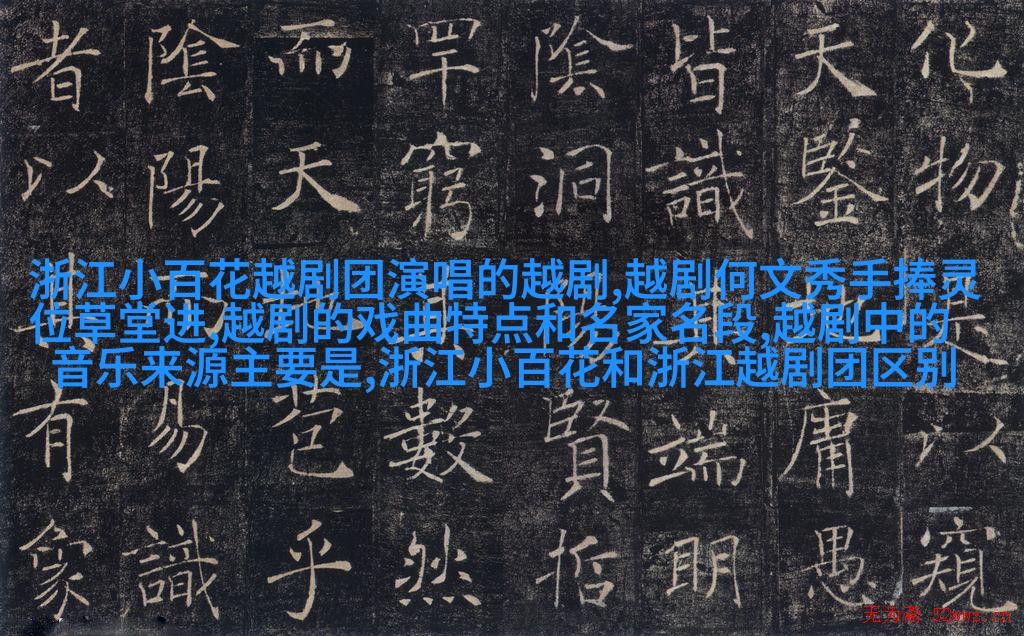 化物以窺
天鑒庸愚
皆識端明
陰洞賢哲
罕窮數然
而天苞乎
陰陽易識
者以有象
浙江小百花越剧团演唱的越剧,越剧何文秀手捧灵
位草堂进,越剧的戏曲特点和名家名段,越剧中的
音乐来源主要是,浙江小百花和浙江越剧团区别
无为斋 52wwz.cn